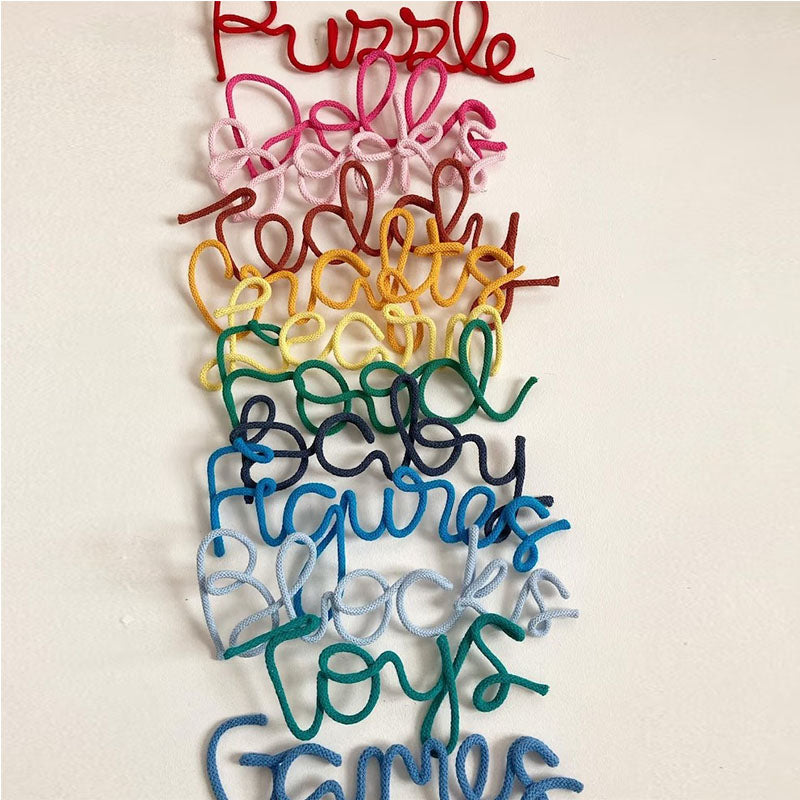 Puzzle
Dolls
Books
Teddy
Crafts
Learn
Food
Baby
Figures
Blocks
Toys
Games